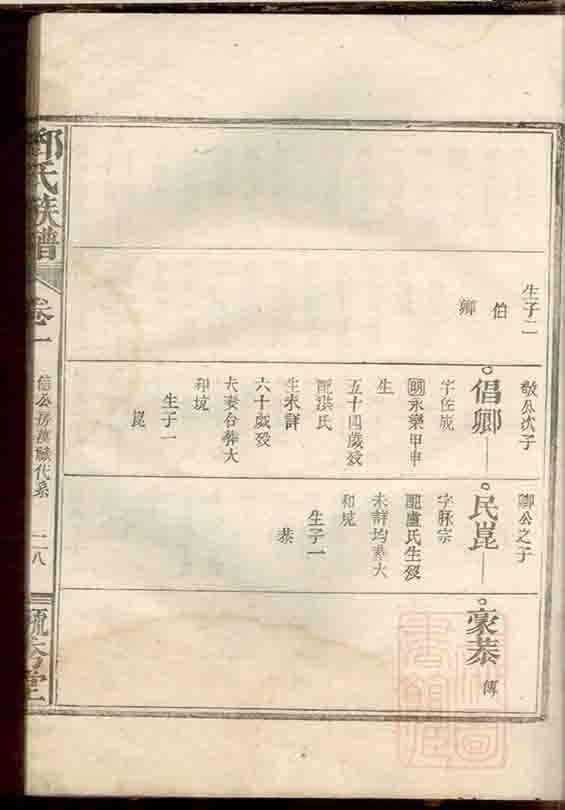 生子二
伯
卿
敬公次子
倡卿
字佐宸
明永樂甲申
生
五十四歲歿
配淇氏
生未詳
六十歲歿
夫妻合葬大
和坑
生子一
崑
卿公之子
民崑
字脉宗
配盧氏生歿
未詳均塟大
和坑
生子一
恭
豪恭
傳
氏族譜
卷一
信公房漢賦代系
二八
堂